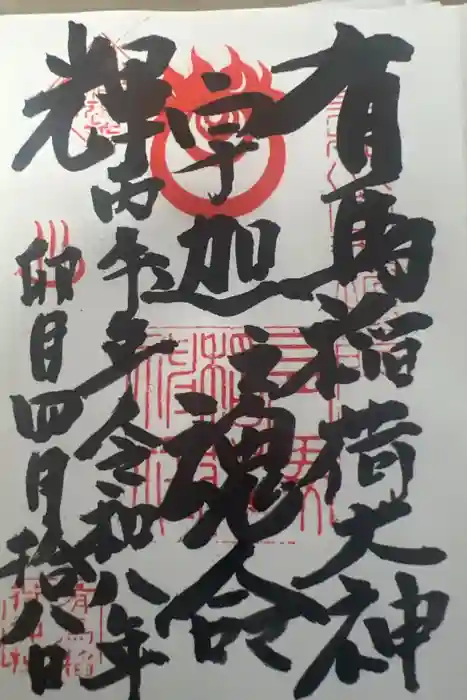 有馬稲荷大神
宇迦之魂命
輝
丙午年令和八年
卯月四月拾八日